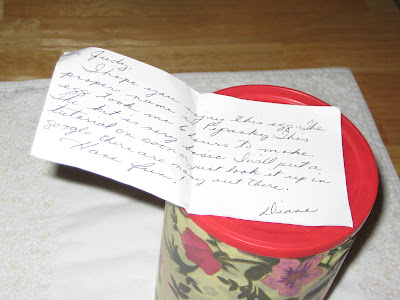 Judy,
I hope you enjoy this egg. The
proper name is Pysanky. This
egg took me 6 hours to make.
The kit is very basic I will put a
tutorial on soon just look it up in
google there are many out there.
Have Fun
Diane